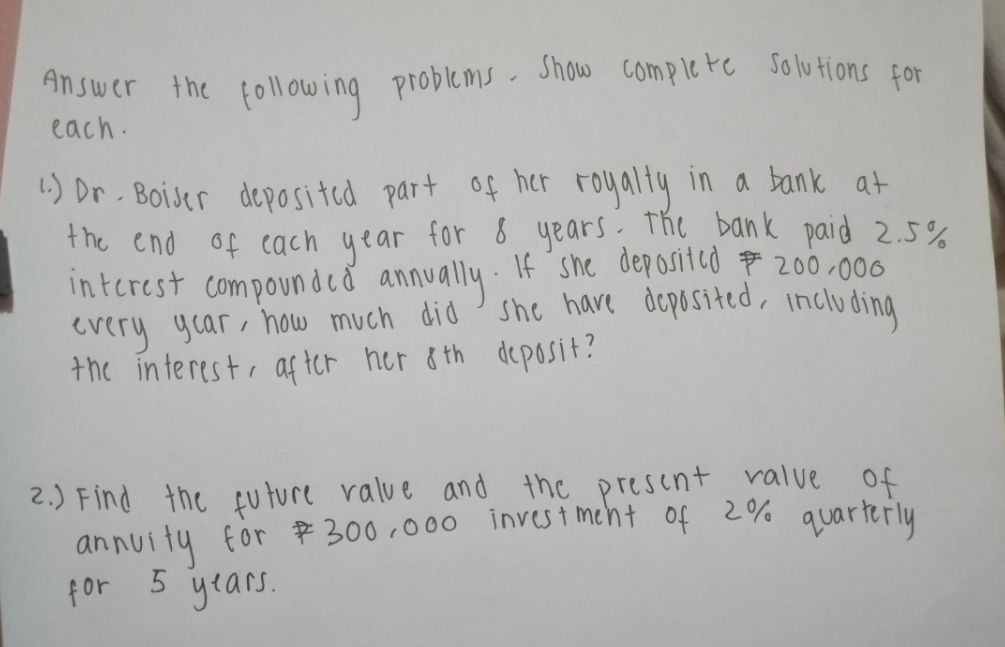 Answer the following problems. Show complete solutions for
each.
1.) Dr. Boiser deposited part of her royalty in a bank at
the end of each year for 8 years. The bank paid 2.5%
interest compounded annually. If she deposited ₱ 200,000
every year, how much did she have deposited, including
the interest, after her 8th deposit?
2.) Find the future value and the present value of
annuity for ₱ 300,000 investment of 2% quarterly
for 5 years.